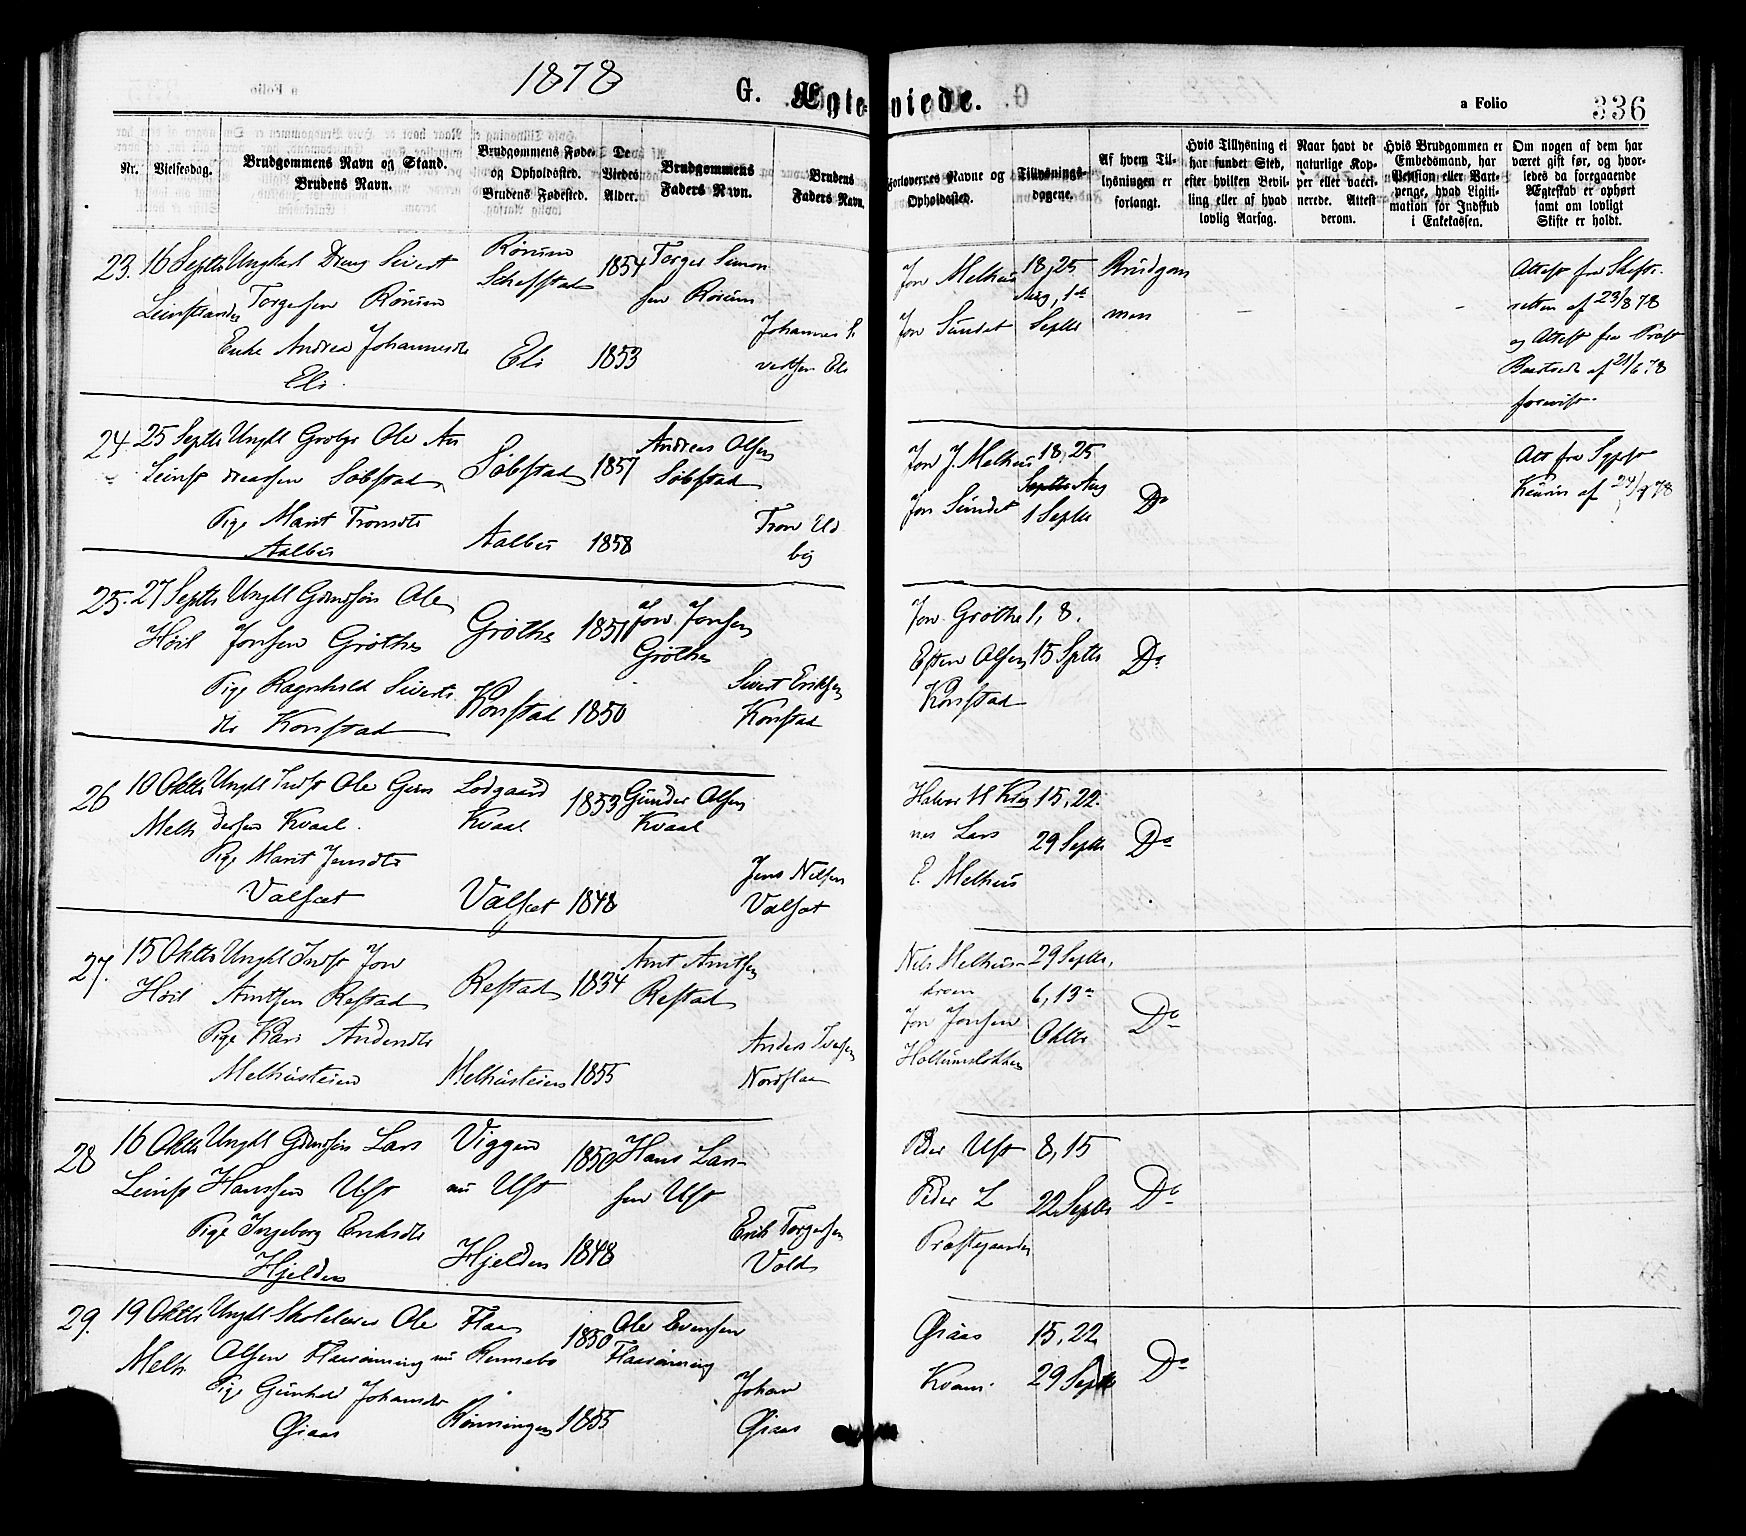 1878
G. Ægteviede.
a Folio 336
Nr.
Vielsesdag.
Brudgommens Navn og Stand.
Brudens Navn.
Brudgommens Føde-
og Opholdssted.
Brudens Fødested.
De
Viedes
Alder.
Brudgommens
Faders Navn.
Brudens
Faders Navn.
Forlovernes Navne og
Opholdssted.
Tillysnings-
dagene.
Af hvem Til-
lysningen er
forlangt.
Hvis Tillysning ei
har fundet Sted,
efter hvilken Bevil-
ling eller af hvad
lovlig Aarsag.
Naar havt de
naturlige Kop-
per eller vacci-
nerede. Attest
derom.
Hvis Brudgommen er
Embedsmand, har
Pension eller Vart-
penge, hvad Ligiti-
mation for Indskud
i Enkekassen.
Om nogen af dem har
været gift før, og hvor-
ledes da foregaaende
Ægteskab er ophørt
samt om lovligt
Skifte er holdt.
23. 16 Septbr Ungkarl Dreng Sivert
Torgersen
Enke Andrea Johannesdtr
Eli
Eli
1854
1853
Torger Simon
sen
Johannes
Eli
Jon Melhus
Jon Sundet
18, 25
Aug, 1st
Septbr
Brudgom
men
Attest fra Skifte-
retten af 23/8 78
og Attest fra Præst
af 21/6 78
forevist.
24. 25 Septbr Ungkl Ole An
Leinst dreassen Søbstad
Pige Marit Tronsdtr
Aalbu
Søbstad
Aalbu
1857
1858
Andreas Olsen
Søbstad
Tron
Jon J. Melhus
Jon Sundet
18, 25
Septbr Aug
1 Septbr
Do
Att fra
af
25. 27 Septbr Ungkl Gdmsøn Ole
Høil Jonsen Grøthe
Pige Ragnhild Siverts
dtr Korstad
Grøthe
Korstad
1851
1850
Jon Jonsen
Grøthe
Sivert Eriksen
Korstad
Jon Grøthe
Esten Olsen
Korstad
1, 8.
15 Septbr
Do
26 10 Oktbr Ungkl Indst Ole Gun
Melh dersen Kvaal.
Pige Marit Jensdtr
Valsæt
Lodgaard
Kvaal
Valsæt
1853
1848
Gunder Olsen
Kvaal
Jens Nilsen
Valsæt
Halvor
Lars
E. Melhus
15, 22.
29 Septbr
Do
27. 15 Oktbr Ungkl Indst Jon
Høil Arntsen Restad
Pige Kari Andersdtr
Melhusteien
Restad
Melhusteien
1834
1855
Arnt Arntsen
Restad
Anders Iversen
Nordflaa
Nils Melhus-
Jon Jonsen
29 Septbr,
6, 13
Oktbr
Do
28 16 Oktbr Ungkl Gdmsøn Lars
Leinst Hanssen Ust
Pige Ingeborg Eriksdtr
Hjelden
Viggen
nu Ust
Hjelden
1850
1848
Hans Lars-
sen Ust
Erik Torgersen
Vold
Peder Ust
Peder L
Præstegaarden
8, 15
22 Septbr
Do
29. 19 Oktbr Ungkl Skolelærer Ole
Melh Olsen Flaarønning
Pige Gunhild Johansdtr
Øiaas
Flaa
nu Rennebo
Rønningen
1850
1855
Ole Evensen
Flaarønning
Johan
Øiaas
Øiaas
Kvam.
15, 22
29 Septbr
Do